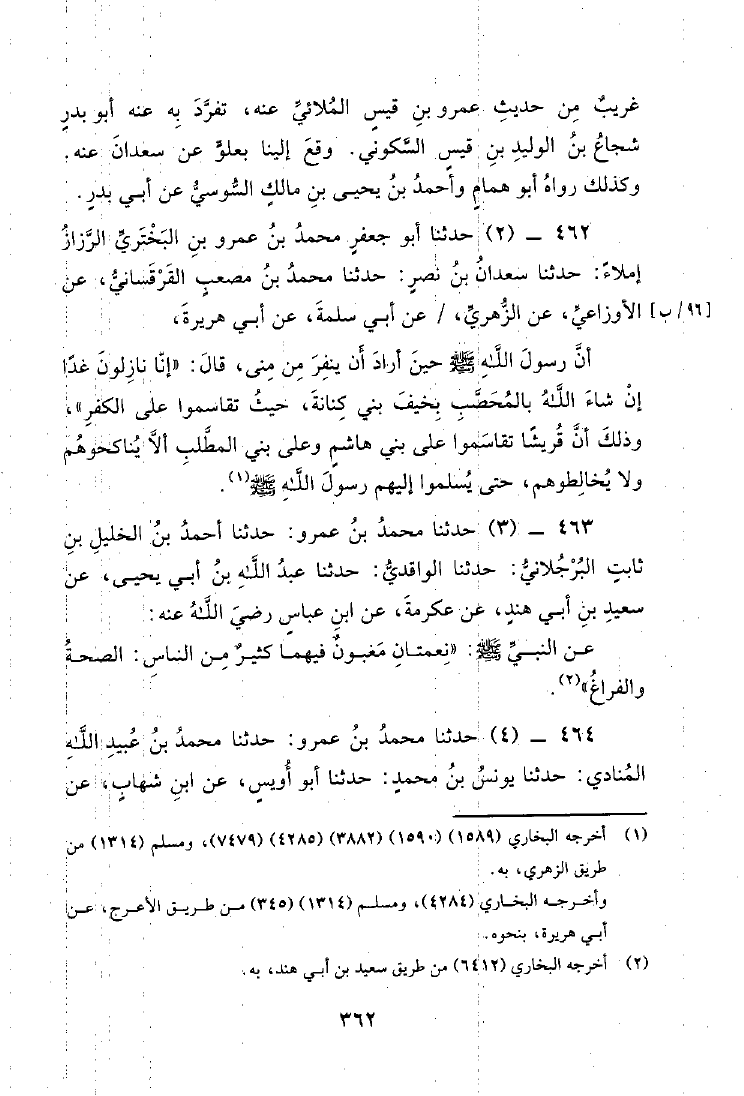 غريبٌ مِن حديثِ عمرو بنِ قيسٍ المُلائيِّ عنه، تفرَّدَ بِه عنه أبو بدرٍ
شجاعُ بنُ الوليدِ بنِ قيسٍ السَّكوني. وقعَ إلينا بعلوٍّ عن سعدانَ عنه.
وكذلك رواهُ أبو همامٍ وأحمدُ بنُ يحيى بنِ مالكٍ السُّوسيُّ عن أبي بدرٍ.
٤٦٢ – (٢) حدثنا أبو جعفرٍ محمدُ بنُ عمرو بنِ البَخْتَريِّ الرَّزازُ
إملاءً: حدثنا سعدانُ بنُ نصرٍ: حدثنا محمدُ بنُ مصعبٍ القَرْقسانيُّ، عن
[٩٦/ ب] الأوزاعيِّ، عن الزُّهريِّ، / عن أبي سلمةَ، عن أبي هريرةَ،
أنَّ رسولَ اللَّـٰهِ ﷺ حينَ أرادَ أن ينفِرَ مِن مِنى، قالَ: «إنَّا نازِلونَ غدًا
إنْ شاءَ اللَّـٰهُ بالمُحَصَّبِ بِخَيفَ بني كِنانةَ، حيثُ تقاسموا على الكفرِ»،
وذلكَ أنَّ قُريشًا تقاسَموا على بني هاشمٍ وعلى بني المطَّلبِ ألاَّ يُناكحوهُم
ولا يُخالِطوهم، حتى يُسلموا إليهم رسولَ اللَّـٰهِ ﷺ(١).
٤٦٣ – (٣) حدثنا محمدُ بنُ عمرو: حدثنا أحمدُ بنُ الخليلِ بنِ
ثابتٍ البُرْجُلانيُّ: حدثنا الواقديُّ: حدثنا عبدُ اللَّـٰهِ بنُ أبي يحيى، عن
سعيدِ بنِ أبي هندٍ، عن عكرمةَ، عن ابنِ عباسٍ رضيَ اللَّـٰهُ عنه:
عن النبيِّ ﷺ: «نِعمتانِ مَغبونٌ فيهما كثيرٌ مِـن الناسِ: الصحةُ
والفراغُ»(٢).
٤٦٤ – (٤) حدثنا محمدُ بنُ عمرو: حدثنا محمدُ بنُ عُبيدِ اللَّـٰهِ
المُنادي: حدثنا يونسُ بنُ محمدٍ: حدثنا أبو أُويسٍ، عن ابنِ شهابٍ، عن
(١) أخرجه البخاري (١٥٨٩) (١٥٩٠) (٣٨٨٢) (٤٢٨٥) (٧٤٧٩)، ومسلم (١٣١٤) من
طريق الزهري، به.
وأخرجه البخاري (٤٢٨٤)، ومسلم (١٣١٤) (٣٤٥) من طريق الأعرج، عن
أبي هريرة، بنحوه.
(٢) أخرجه البخاري (٦٤١٢) من طريق سعيد بن أبي هند، به.
٣٦٢